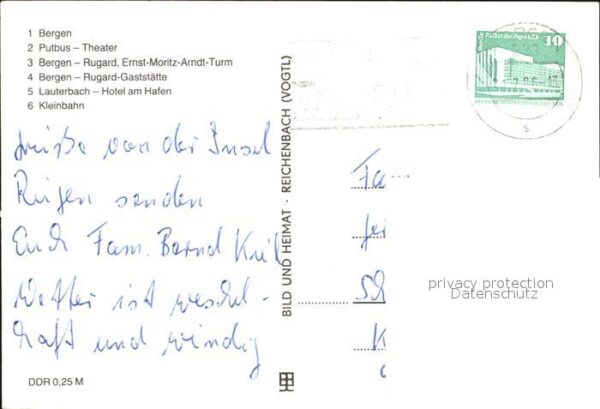 1 Bergen
2 Putbus – Theater
3 Bergen – Rugard, Ernst-Moritz-Arndt-Turm
4 Bergen – Rugard-Gaststätte
5 Lauterbach – Hotel am Hafen
6 Kleinbahn
Grüße von der Insel
Rügen senden
Euch Fam. Bernd
Wetter ist wechsel-
haft und windig
DDR 0,25 M
BILD UND HEIMAT · REICHENBACH (VOGTL)
Berlin Palast der Republik
10
Fa
privacy protection
Datenschutz